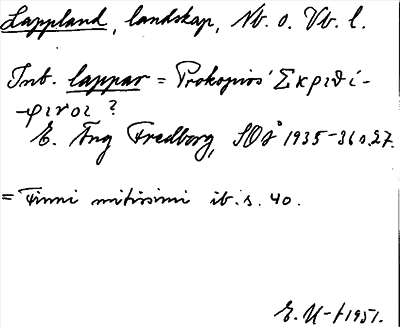 Lappland, landskap, Nb. o. Vb. l.
Inb. lappar = Prokopios' Σκριθί-
-φινοι ?
E. Äng Fredborg, SOÅ 1935-36 s. 27.
= Finni mitissimi ib. s. 40.
E. 1951.